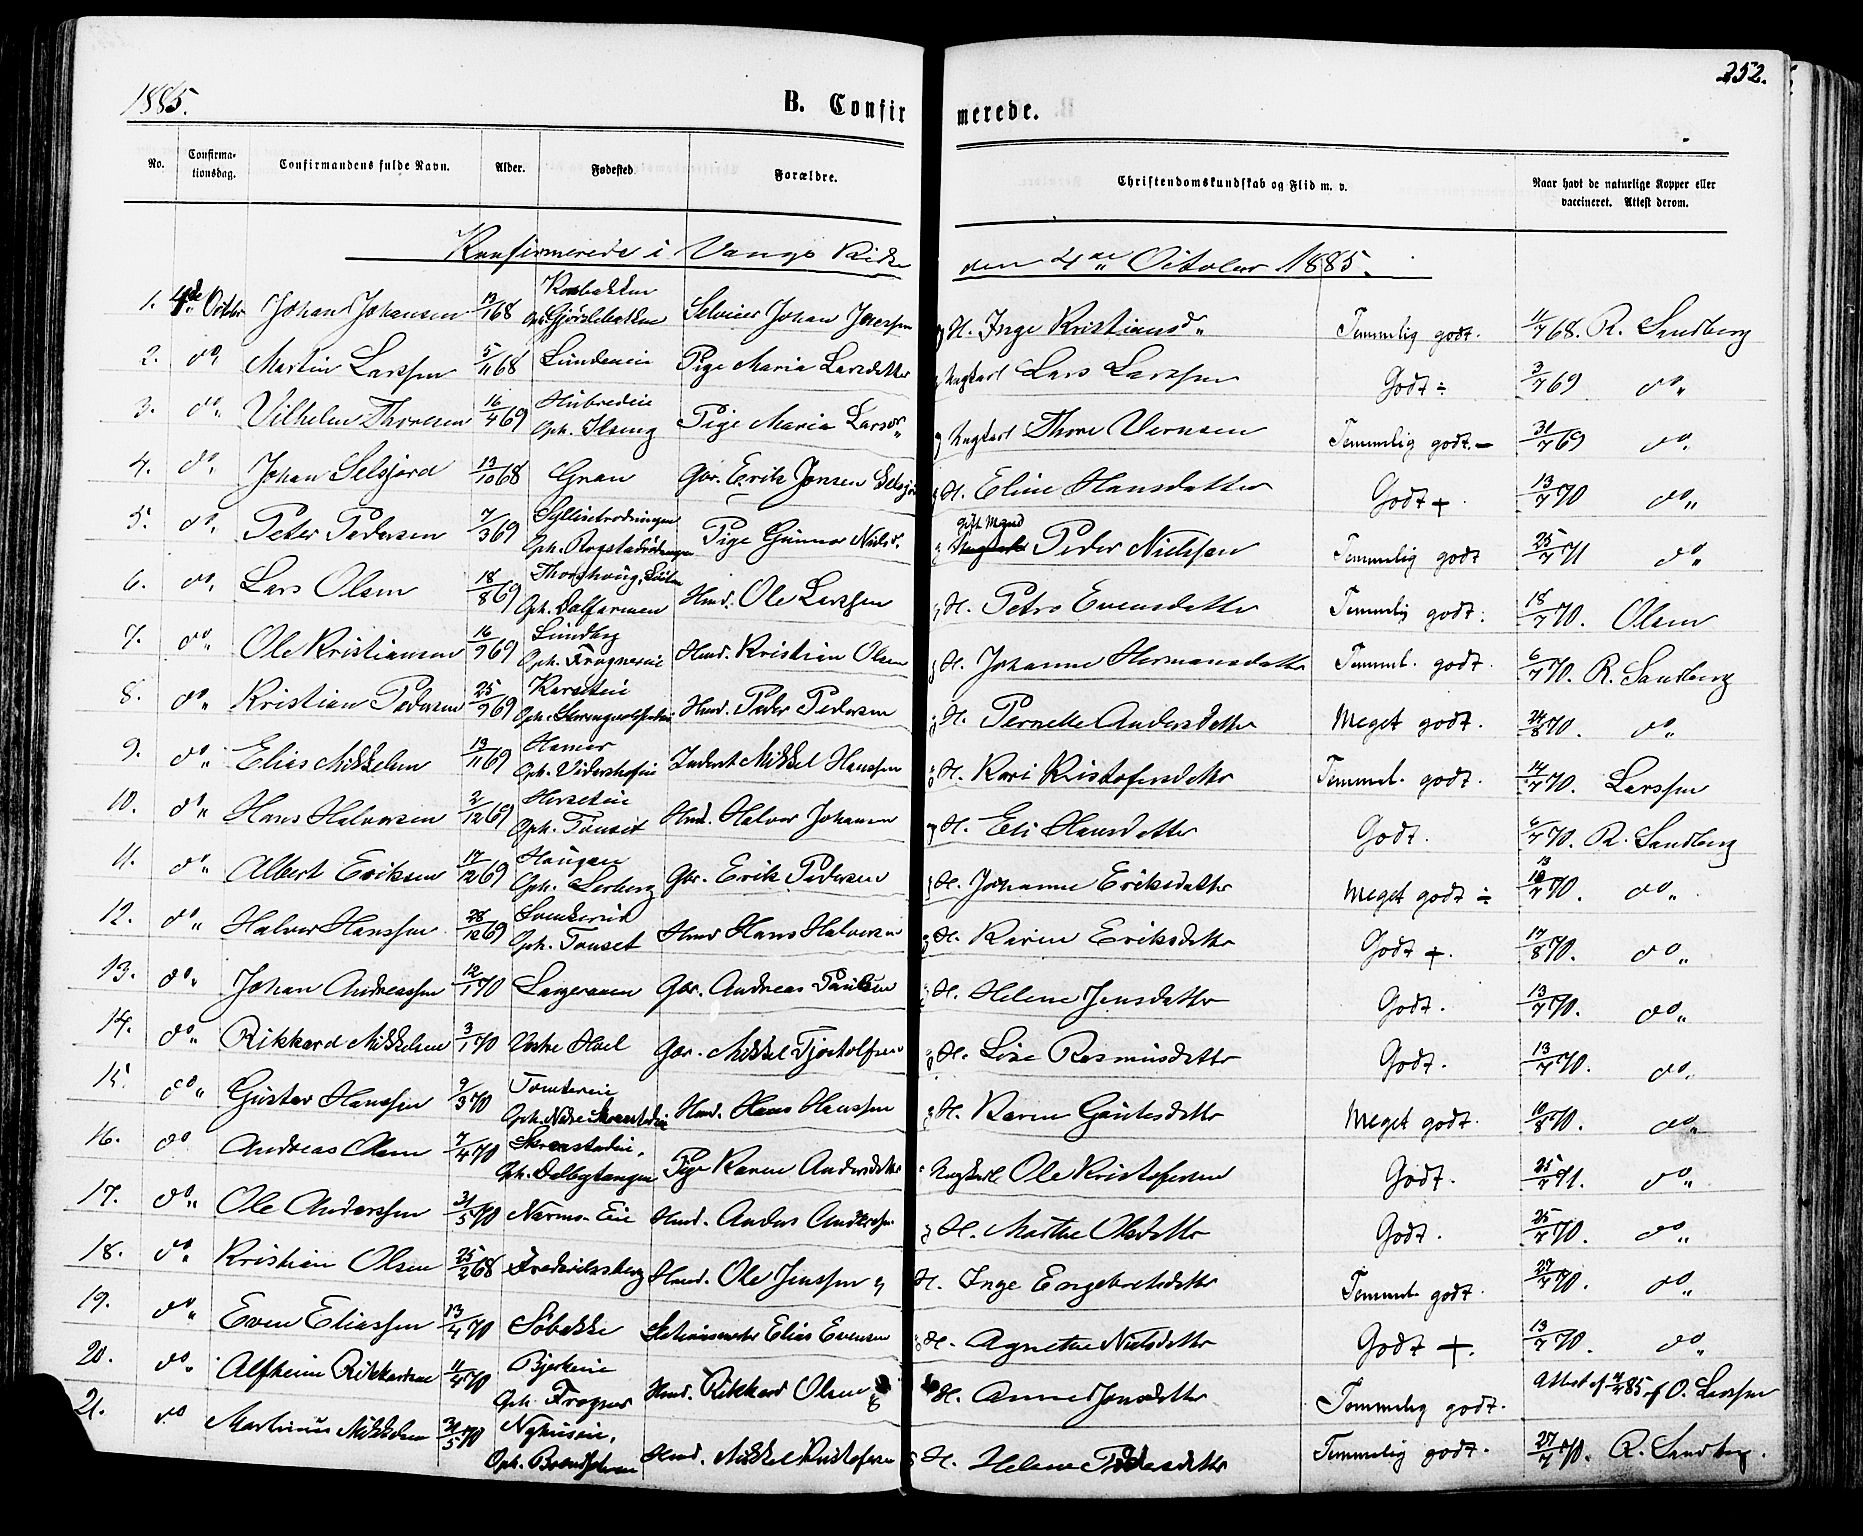 1885.
252.
B. Confirmerede.
No. Confirmationsdag. Confirmandens fulde Navn. Alder. Fødested Forældre. Christendomskundskab og Flid m. v. Naar havt de naturlige Kopper eller vaccineret. Attest derom.
Konfirmerede i Vangs Kirke den 4de October 1885.
1. 4de Octbr Johan Johansen 68 Johan H. Inge Kristiansd. Temmelig godt. 11/7 68. R. Sandberg
2. do Martin Larssen 5/11 68 Lundeeie Pige Maria Larsdatter Ungkarl Lars Larssen Godt ÷ 3/7 69 do
3. do Vilhelm Thoresen 16/4 69 Hubredeie Oph. Ilseng Pige Maria Larsd. Ungkarl Thore Temmelig godt. 31/7 69 do
4. do Johan Selsjord 13/10 68 Gran Gbr. Erik Jonsen H. Eline Hansdatter Godt + 13/7 70 do
5. do Peter Pedersen 7/3 69 Pige Gunnor Nielsd. gift Mand Peder Nielssen Temmelig godt 25/7 71 do
6. do Lars Olsen 18/8 69 Oph. Dalfarmen Hmd. Ole Larssen H. Petra Evensdatter Temmelig godt. 18/7 70. Olsen
7. do Ole Kristiansen 16/9 69 Lundby Oph. Frogneseie Hmd. Kristian Olsen H. Johanne Hermansdatter Temmel. godt. 6/7 70. R. Sandberg
8. do Kristian Pedersen 25/9 69 Hmd. Peder Pedersen H. Pernelle Andersdatter Meget godt. 24/8 70. do
9. do Elias Mikkelsen 13/11 69 Hamar Oph. Vidarshofeie Inderst Mikkel Hanssen H. Kari Kristofersdatter Temmel. godt. 14/7 70. Larssen
10. do Hans Halvorsen 2/12 69 Oph. Tønset Hmd. Halvor Johansen H. Eli Hansdatter Godt. 6/7 70. R. Sandberg
11. do Albert Eriksen 17/12 69 Haugen Gbr. Erik Pedersen H. Johanne Eriksdatter Meget godt ÷ 13/7 70. do
12. do Halvor Hanssen 28/12 69 Oph. Tønset Hmd Hans Halvorsen H. Karen Eriksdatter Godt + 17/8 70. do
13. do Johan Andreassen 12/1 70 Gbr. Andreas Paulsen H. Helene Jensdatter Godt. 13/7 70. do
14. do Rikkard Mikkelsen 3/1 70 Vestre Hael Gbr. Mikkel Tjostolfsen H. Lise Rasmusdatter Godt. 13/7 70. do
15. do Gustav Hanssen 9/3 70 Tomtereie Hmd. Hans Hanssen H. Karen Gautesdatter Meget godt. 10/8 70. do
16. do Andreas Olsen 7/4 70 Skrarstadeie, Oph. Dalbytangen Pige Karen Andersdatter Ungkarl Ole Kristofersen Godt. 25/7 71. do
17. do Ole Anderssen 31/5 70 Nærmo-Eie Hmd. Anders Anderssen H. Marthe Olsdatter Godt. 25/7 70. do
18. do Kristian Olsen 25/2 68 Frederiksberg Hmd. Ole Jenssen og H. Inge Engebretsdatter Temmel. godt. 27/7 70. do
19. do Even Eliassen 13/4 70 Søbakke Elias Evensen H. Agnethe Nielsdatter Godt +. 13/7 70. do
20. do Alfheim Rikkardsen 11/4 70 Bjerkeeie Oph. Frogner Hmd. Rikkard Olsen H. Anne Jonsdatter Temmelig godt. Attest af 85 af O. Larssen
21. do Martinius Mikkelsen 31/5 70 Nyhuseie, Oph. Hmd. Mikkel Kristofersen H. Helene Pedersdatter Temmelig godt. 27/7 70. R. Sandberg.